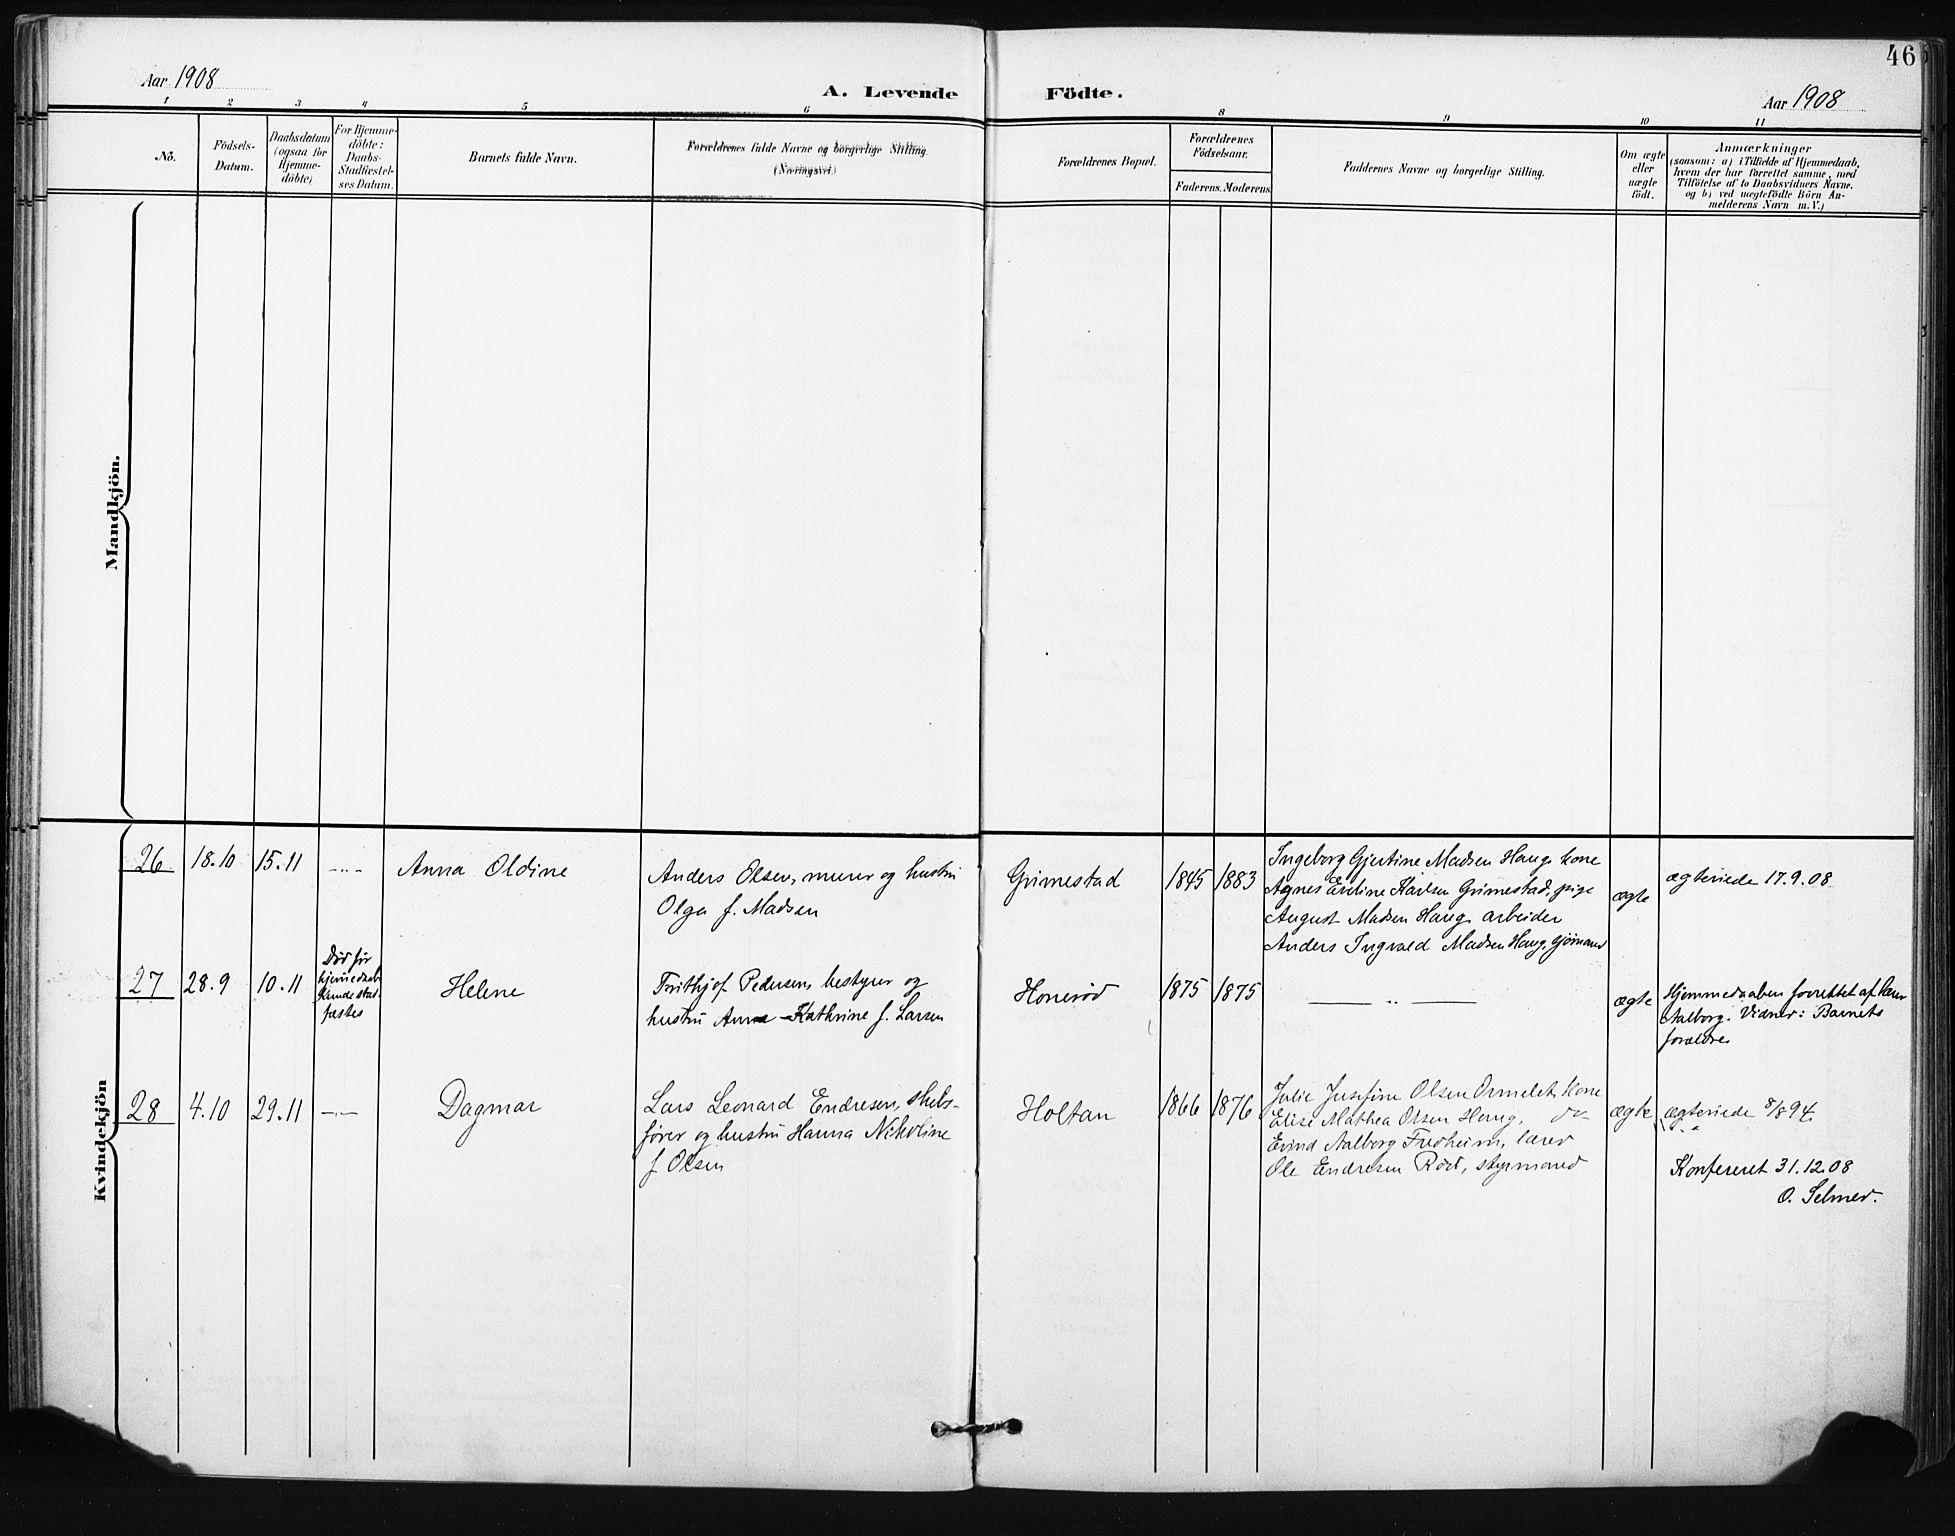 46
Aar 1908
A. Levende Födte.
Aar 1908
1 2 3 4 5 6 8 9 10 11
No.
Födsels-
Datum.
Daabsdatum
(ogsaa for
Hjemme-
döbte)
For Hjemme-
döbte:
Daabs-
Stadfæstel-
ses Datum.
Barnets fulde Navn.
Forældrenes fulde Navne og borgerlige Stilling
(Næringsvei.)
Forældrenes Bopæl.
Forældrenes
Födselsaar.
Faderens. Moderens.
Faddernes Navne og borgerlige Stilling.
Om ægte
eller
uægte
födt.
Anmærkninger
(saasom: a) i Tilfælde af Hjemmedaab,
hvem der har forrettet samme, med
Tilföielse af to Daabsvidners Navne.
og b) ved uægtefödte Börn An-
melderens Navn m. V.)
Mandkjön.
Kvindekjön
26
18.10
15.11
-"-
Anna Oldine
Anders Olsen, murer og hustru
Olga f. Madsen
Grimestad
1845
1883
Ingeborg Gjertine Madsen Haug, kone
Agnes Karlsen Grimestad, pige
August Madsen Haug, arbeider
Anders Ingvald Madsen Haug, sjømand
ægte
ægteviede 17.9.08
27
28.9
10.11
Død før
hjemmedaab
kunde stad-
fæstes
Helene
Frithjof Pedersen, bestyrer og
hustru Anna Kathrine f. Larsen
Honerød
1875
1875
— " —
ægte
Hjemmedaaben forrettet af lærer
Aalborg. Vidner: Barnets
forældre
28
4.10
29.11
-"-
Dagmar
Lars Leonard Endresen, skibs-
fører og hustru Hanna Nikoline
f Olsen
Holtan
1866
1876
Julie Josefine Olsen Ormelet, kone
Elise Mathea Olsen Haug, do
Eivind Aalborg Fredheim, lærer
Ole Endresen Rød, styrmand
ægte
ægteviede 8/8 94
Konfereret 31.12.08
O. Selmer.